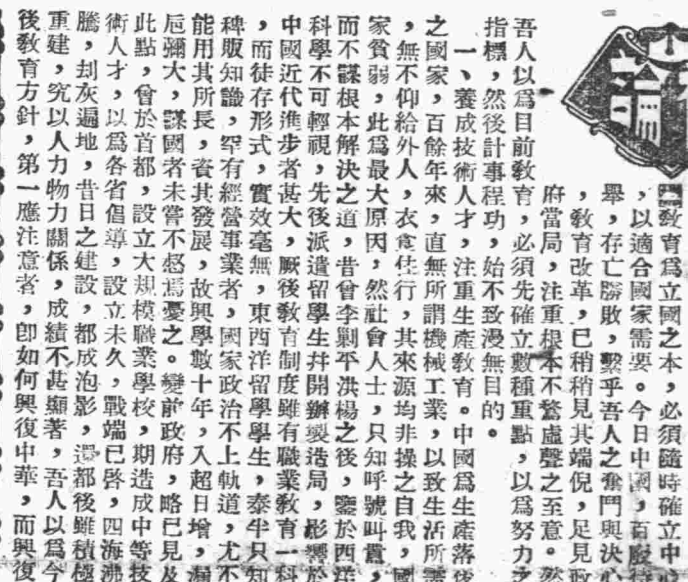 教育爲立國之本，必須隨時確立中心
，以適合國家需要。今日中國，百廢待
舉，存亡勝敗，繫乎吾人之奮鬥與決心
，敎育改革，已稍稍見其端倪，足見政
府當局，注重根本不騖虛聲之至意。然
吾人以爲目前敎育，必須先確立數種重點，以爲努力之
指標，然後計事程功，始不致漫無目的。
一、養成技術人才，注重生產敎育。中國爲生產落後
之國家，百餘年來，直無所謂機械工業，以致生活所需
，無不仰給外人，衣食住行，其來源均非操之自我，國
家貧弱，此爲最大原因，然社會人士，只知呼號叫囂，
而不謀根本解決之道，昔曾李剿平洪楊之後，鑒於西洋
科學不可輕視，先後派遣留學生幷開辦製造局，影響於
中國近代進步者甚大，厥後敎育制度雖有職業敎育一科
，而徒存形式，實效毫無，東西洋留學學生，泰半只知
稗販知識，罕有經營事業者，國家政治不上軌道，尤不
能用其所長，資其發展，故興學數十年，入超日增，漏
卮彌大，謀國者未嘗不惄焉憂之。變前政府，略已見及
此點，曾於首都，設立大規模職業學校，期造成中等技
術人才，以爲各省倡導，設立未久，戰端已啓，四海沸
騰，刦灰遍地，昔日之建設，都成泡影，還都後雖積極
重建，究以人力物力關係，成績不甚顯著，吾人以爲今
後敎育方針，第一應注意者，卽如何興復中華，而興復